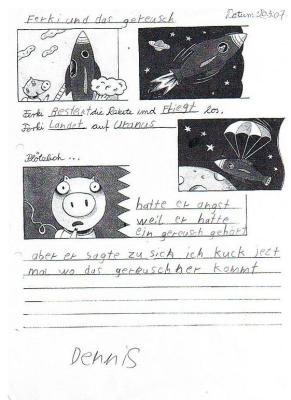 Ferki und das gereusch
Datum: 20.3.07
Ferki Besteikt die Rakete und Fliegt los.
Ferki Landet auf Uranus
Plötzlich ...
hatte er angst
weil er hatte
ein gereusch gehört
aber er sagte zu sich ich kuck jezt
mal wo das gereusch her kommt
Dennis